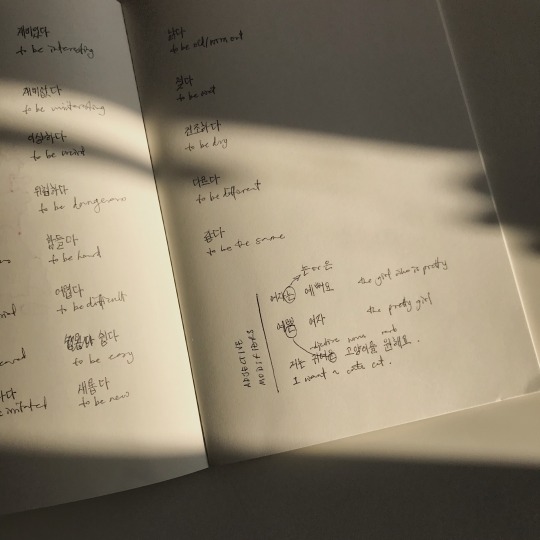 재미있다
to be interesting
재미없다
to be uninteresting
이상하다
to be weird
위험하다
to be dangerous
힘들다
to be hard
어렵다
to be difficult
쉽다
to be easy
새롭다
to be new
낡다
to be old/worn out
젖다
to be wet
건조하다
to be dry
다르다
to be different
같다
to be the same
ADJECTIVE
MODIFIERS
는 or 은
여자는 예뻐요 the girl who is pretty
예쁜 여자 the pretty girl
adjective noun verb
저는 귀여운 고양이를 원해요.
I want a cute cat.